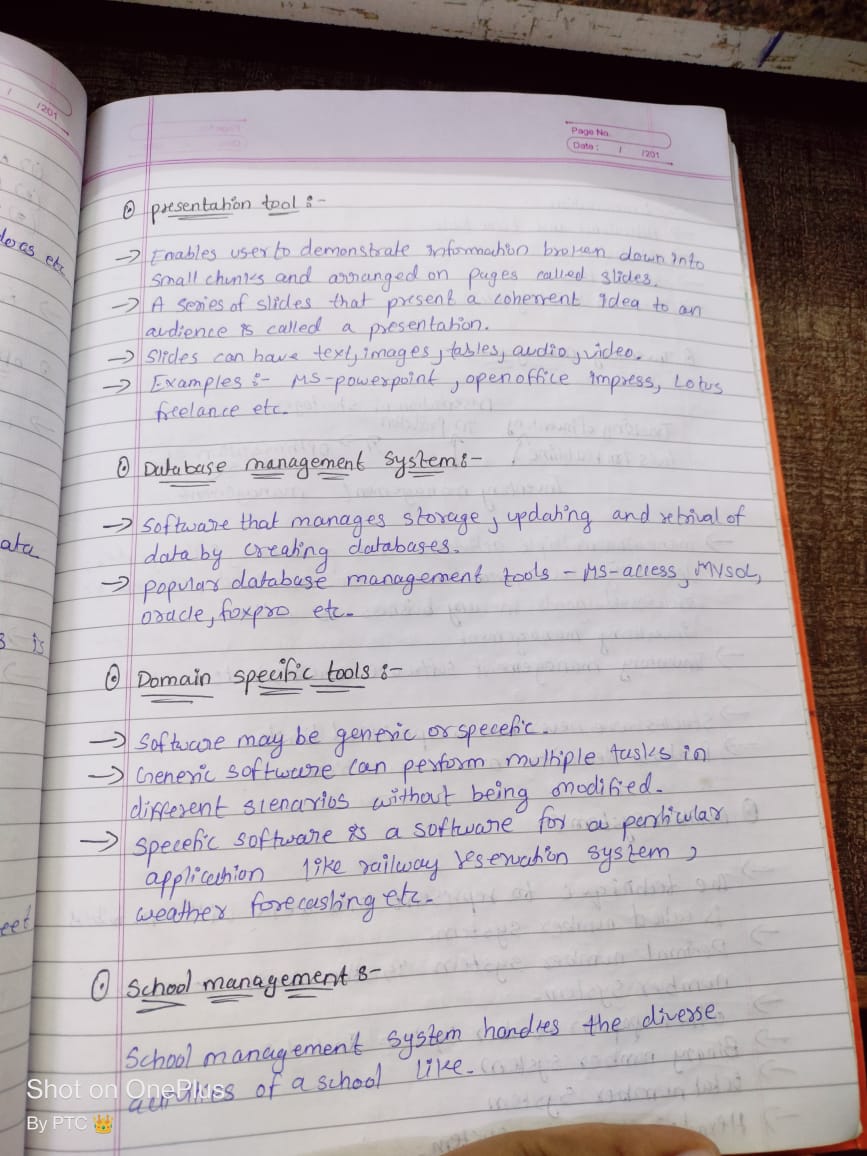 / /201
Page No.
Date : / /201
presentation tool :-
→ Enables user to demonstrate information broken down into
small chunks and arranged on pages called slides.
→ A series of slides that present a coherrent idea to an
audience is called a presentation.
→ Slides can have text, images, tables, audio, video.
→ Examples :- MS-powerpoint, openoffice impress, Lotus
freelance etc.
Database management system :-
→ Software that manages storage, updating and retrival of
data by creating databases.
→ popular database management tools - MS-access, MYSQL,
oracle, foxpro etc.
Domain specific tools :-
→ Software may be generic or specefic.
→ Generic software can perform multiple tasks in
different scenarios without being modified.
→ specefic software is a software for a particular
application like railway reservation system,
weather forecasting etc.
School management :-
School management system handles the diverse
activities of a school like.
Shot on OnePlus
By PTC 👑